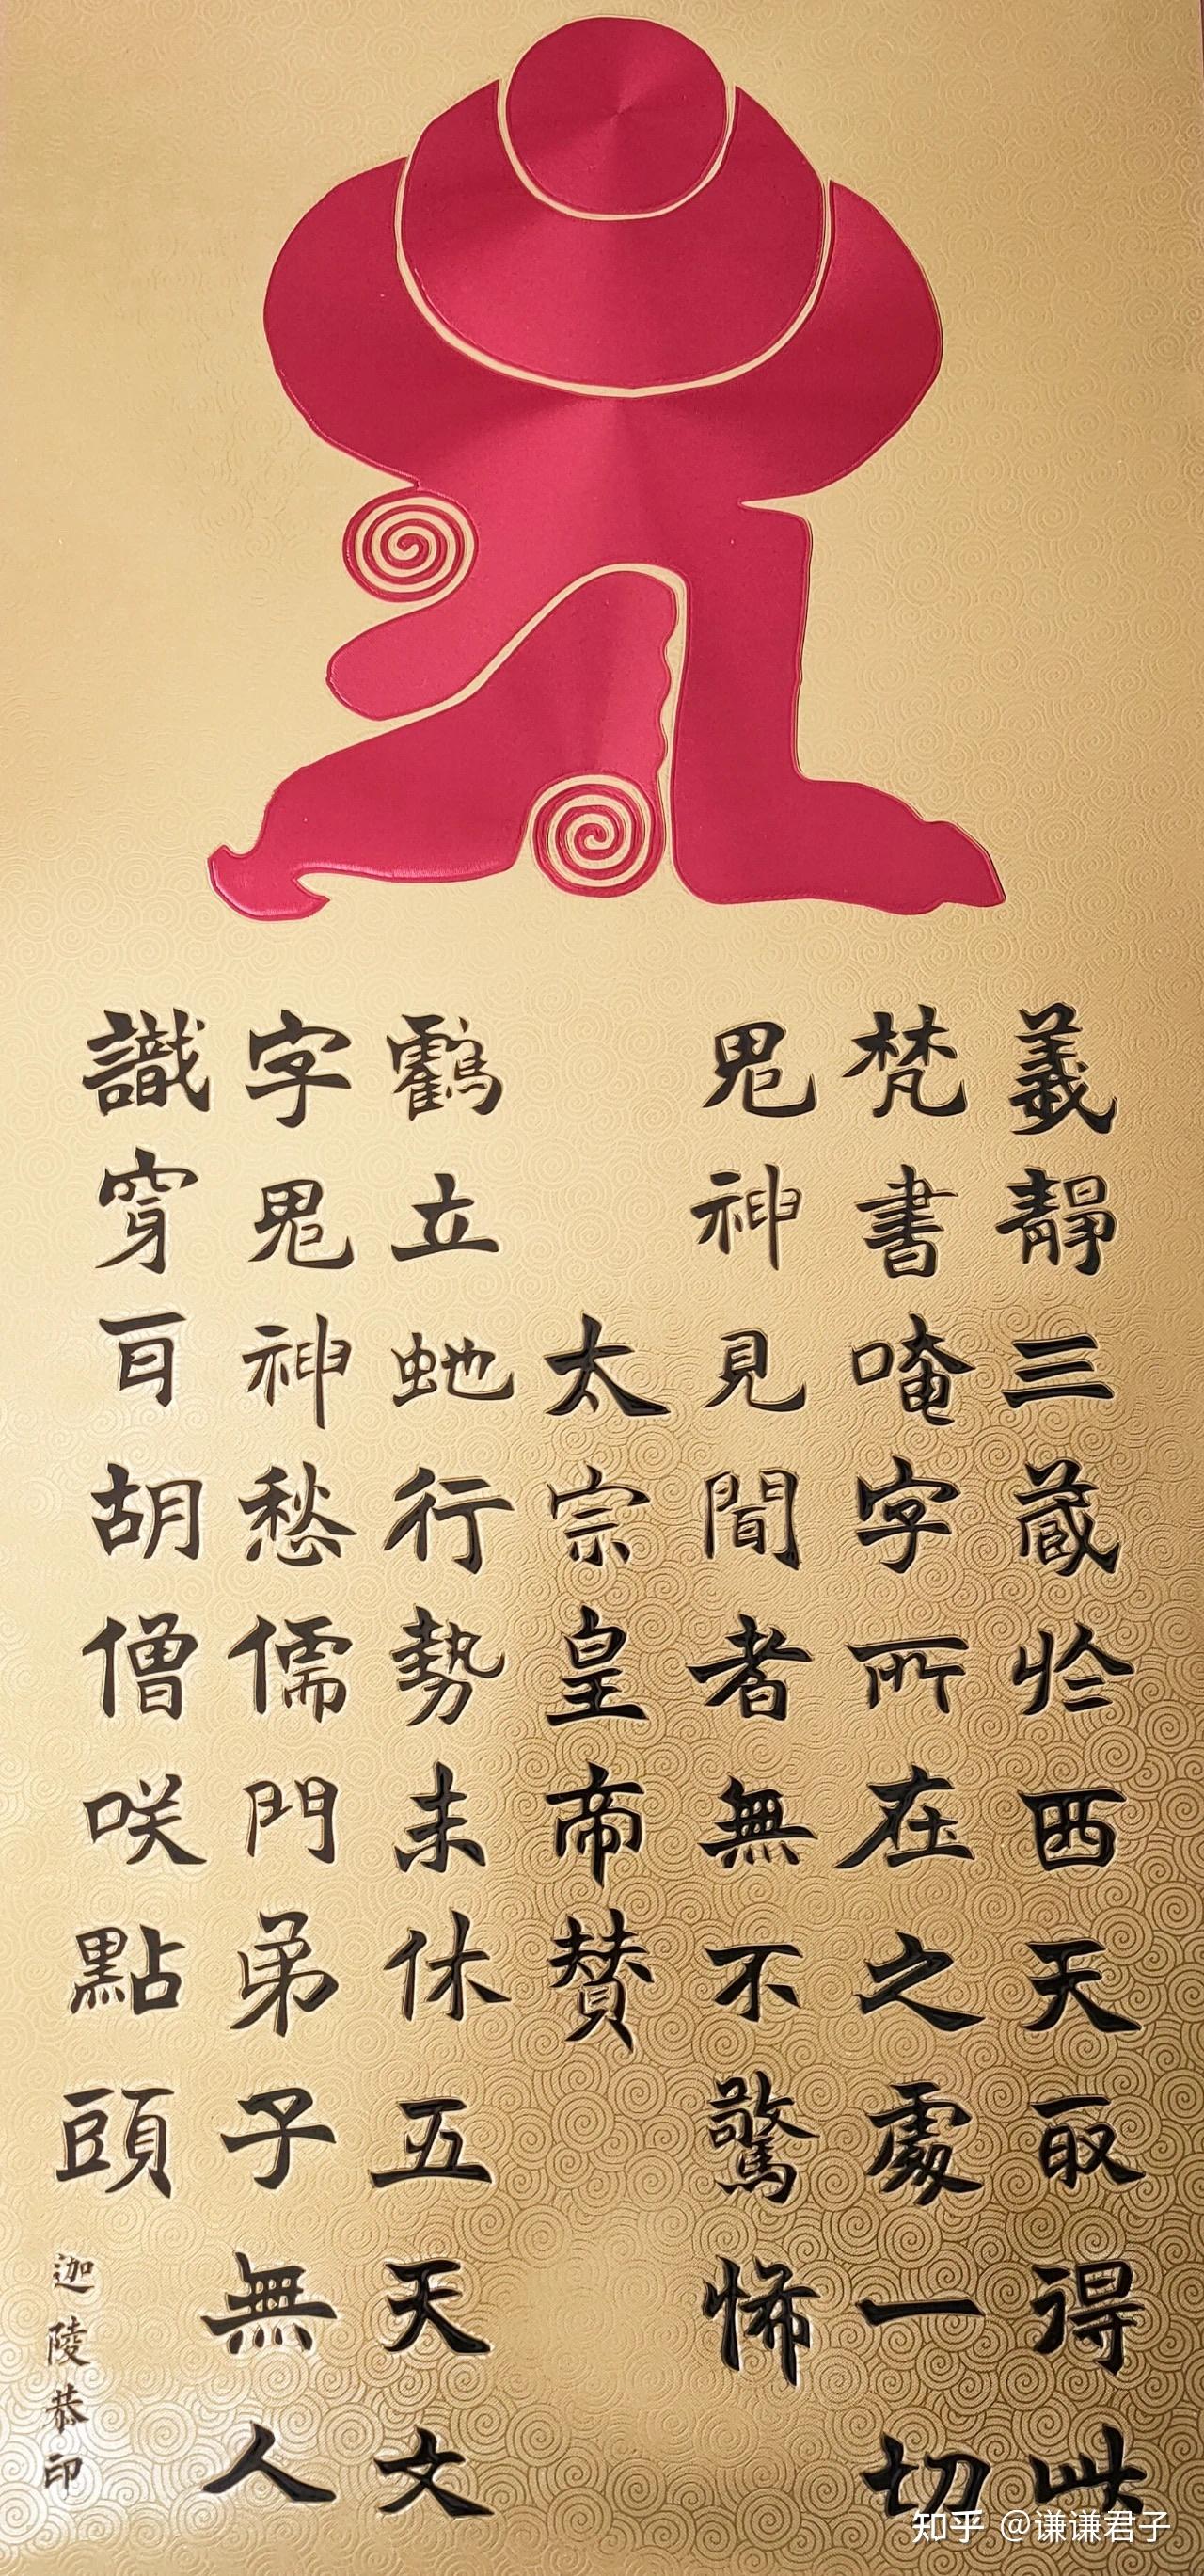 義靜三蔵於西天取得此
梵書唵字所在之處一切
鬼神見聞者無不驚怖
太宗皇帝賛
鸖立虵行勢未休五天文
字鬼神愁儒門弟子無人
識穿耳胡僧咲點頭
迦陵恭印
知乎 @谦谦君子